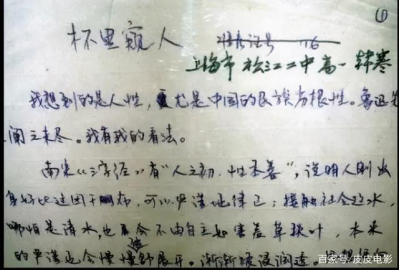 ①
杯里窥人
准考证号 116
上海市松江二中高一 韩寒
我想到的是人性,尤是中国的民族劣根性。鲁迅先
阐之未尽。我有我的看法。
南宋《三字经》有“人之初,性本善”,说明人刚出
身好比这团干布,可以严谨地律己;接触社会这水,
哪怕是清水,也会不由自主如害羞草款叶,本来
的严谨也会慢慢舒展开。渐渐被浸润透。
百家号/皮皮电影